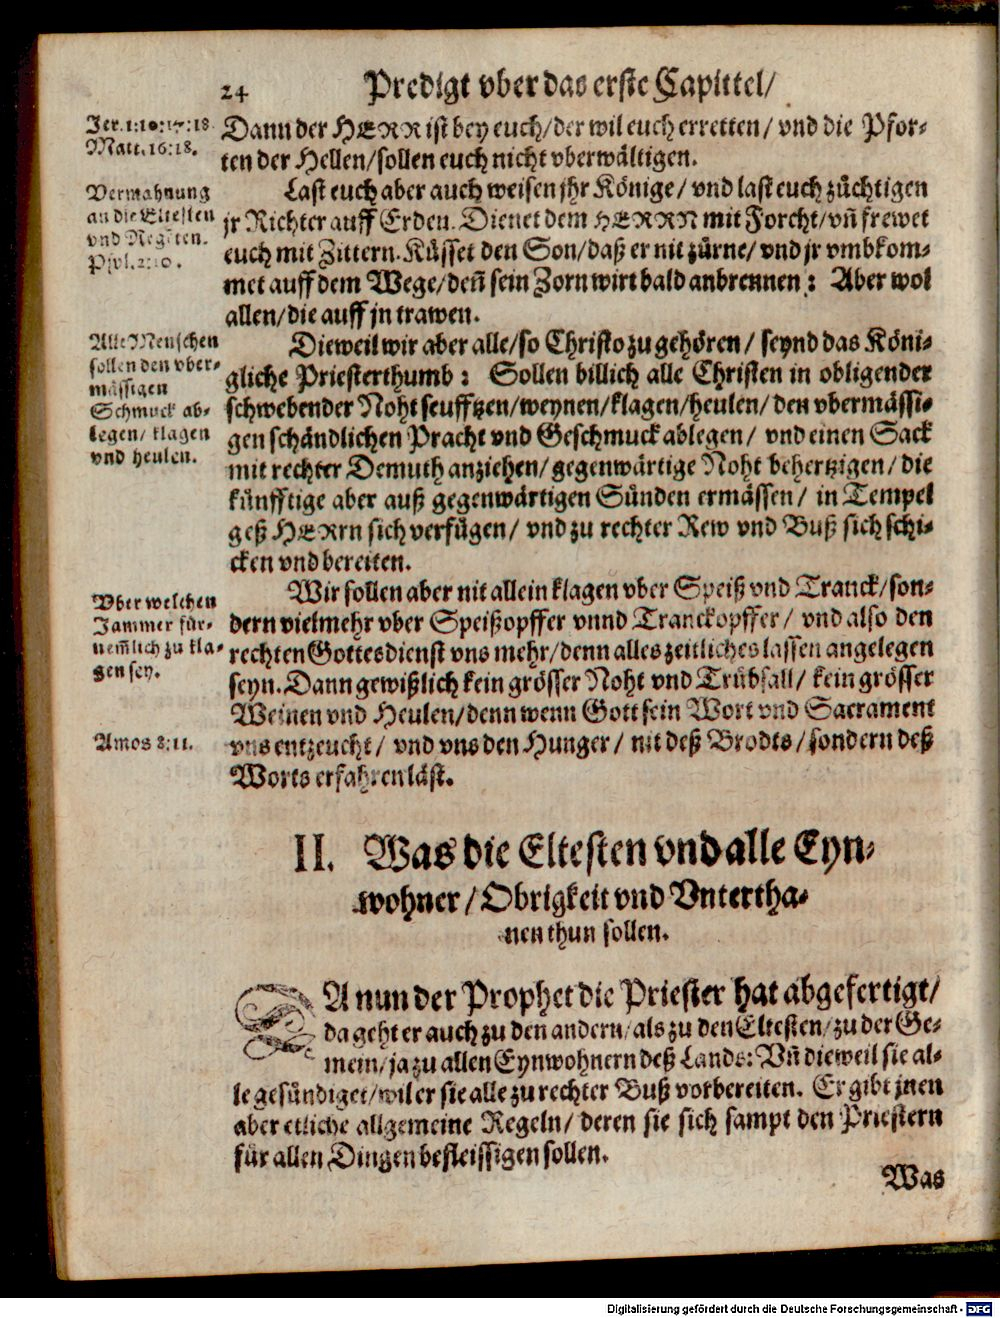 24 Predigt vber das erste Capittel/
Jer. 1:10:17:18.
Matt. 16:18.
Dann der HERR ist bey euch/der wil euch erretten/ vnd die Pfor-
ten der Hellen/sollen euch nicht vberwältigen.
Vermahnung
an die Eltesten
vnd Regēten.
Psal. 2:10.
Last euch aber auch weisen jhr Könige/ vnd last euch züchtigen
jr Richter auff Erden. Dienet dem HERRN mit Forcht/vñ frewet
euch mit Zittern. Küsset den Son/daß er nit zürne/ vnd jr vmbkom-
met auff dem Wege/deñ sein Zorn wirt bald anbrennen: Aber wol
allen/die auff jn trawen.
Alle Menschen
sollen den vber-
mässigen
Schmuck ab-
legen/ klagen
vnd heulen.
Dieweil wir aber alle/so Christo zu gehören/ seynd das Köni-
gliche Priesterthumb: Sollen billich alle Christen in obligender
schwebender Noht seufftzen/weynen/klagen/heulen/ den vbermässi-
gen schändlichen Pracht vnd Geschmuck ablegen/ vnd einen Sack
mit rechter Demuth anziehen/gegenwärtige Noht behertzigen/die
künfftige aber auß gegenwärtigen Sünden ermässen/ in Tempel
geß HERrn sich verfügen/ vnd zu rechter Rew vnd Buß sich schi-
cken vnd bereiten.
Vber welchen
Jammer für-
nem̃lich zu kla-
gen sey.
Amos 8:11.
Wir sollen aber nit allein klagen vber Speiß vnd Tranck/son-
dern vielmehr vber Speißopffer vnnd Tranckopffer/ vnd also den
rechten Gottesdienst vns mehr/denn alles zeitliches lassen angelegen
seyn. Dann gewißlich kein grösser Noht vnd Trübsall/ kein grösser
Weinen vnd Heulen/denn wenn Gott sein Wort vnd Sacrament
vns entzeucht/ vnd vns den Hunger/ nit deß Brodts/sondern deß
Worts erfahren läst.
II. Was die Eltesten vnd alle Eyn-
wohner/Obrigkeit vnd Vntertha-
nen thun sollen.
DA nun der Prophet die Priester hat abgefertigt/
da geht er auch zu den andern/als zu den Eltesten/zu der Ge-
mein/ja zu allen Eynwohnern deß Lands: Vñ dieweil sie al-
le gesündiget/wil er sie alle zu rechter Buß vorbereiten. Er gibt jnen
aber etliche allgemeine Regeln/ deren sie sich sampt den Priestern
für allen Dingen befleissigen sollen.
Was
Digitalisierung gefördert durch die Deutsche Forschungsgemeinschaft - DFG